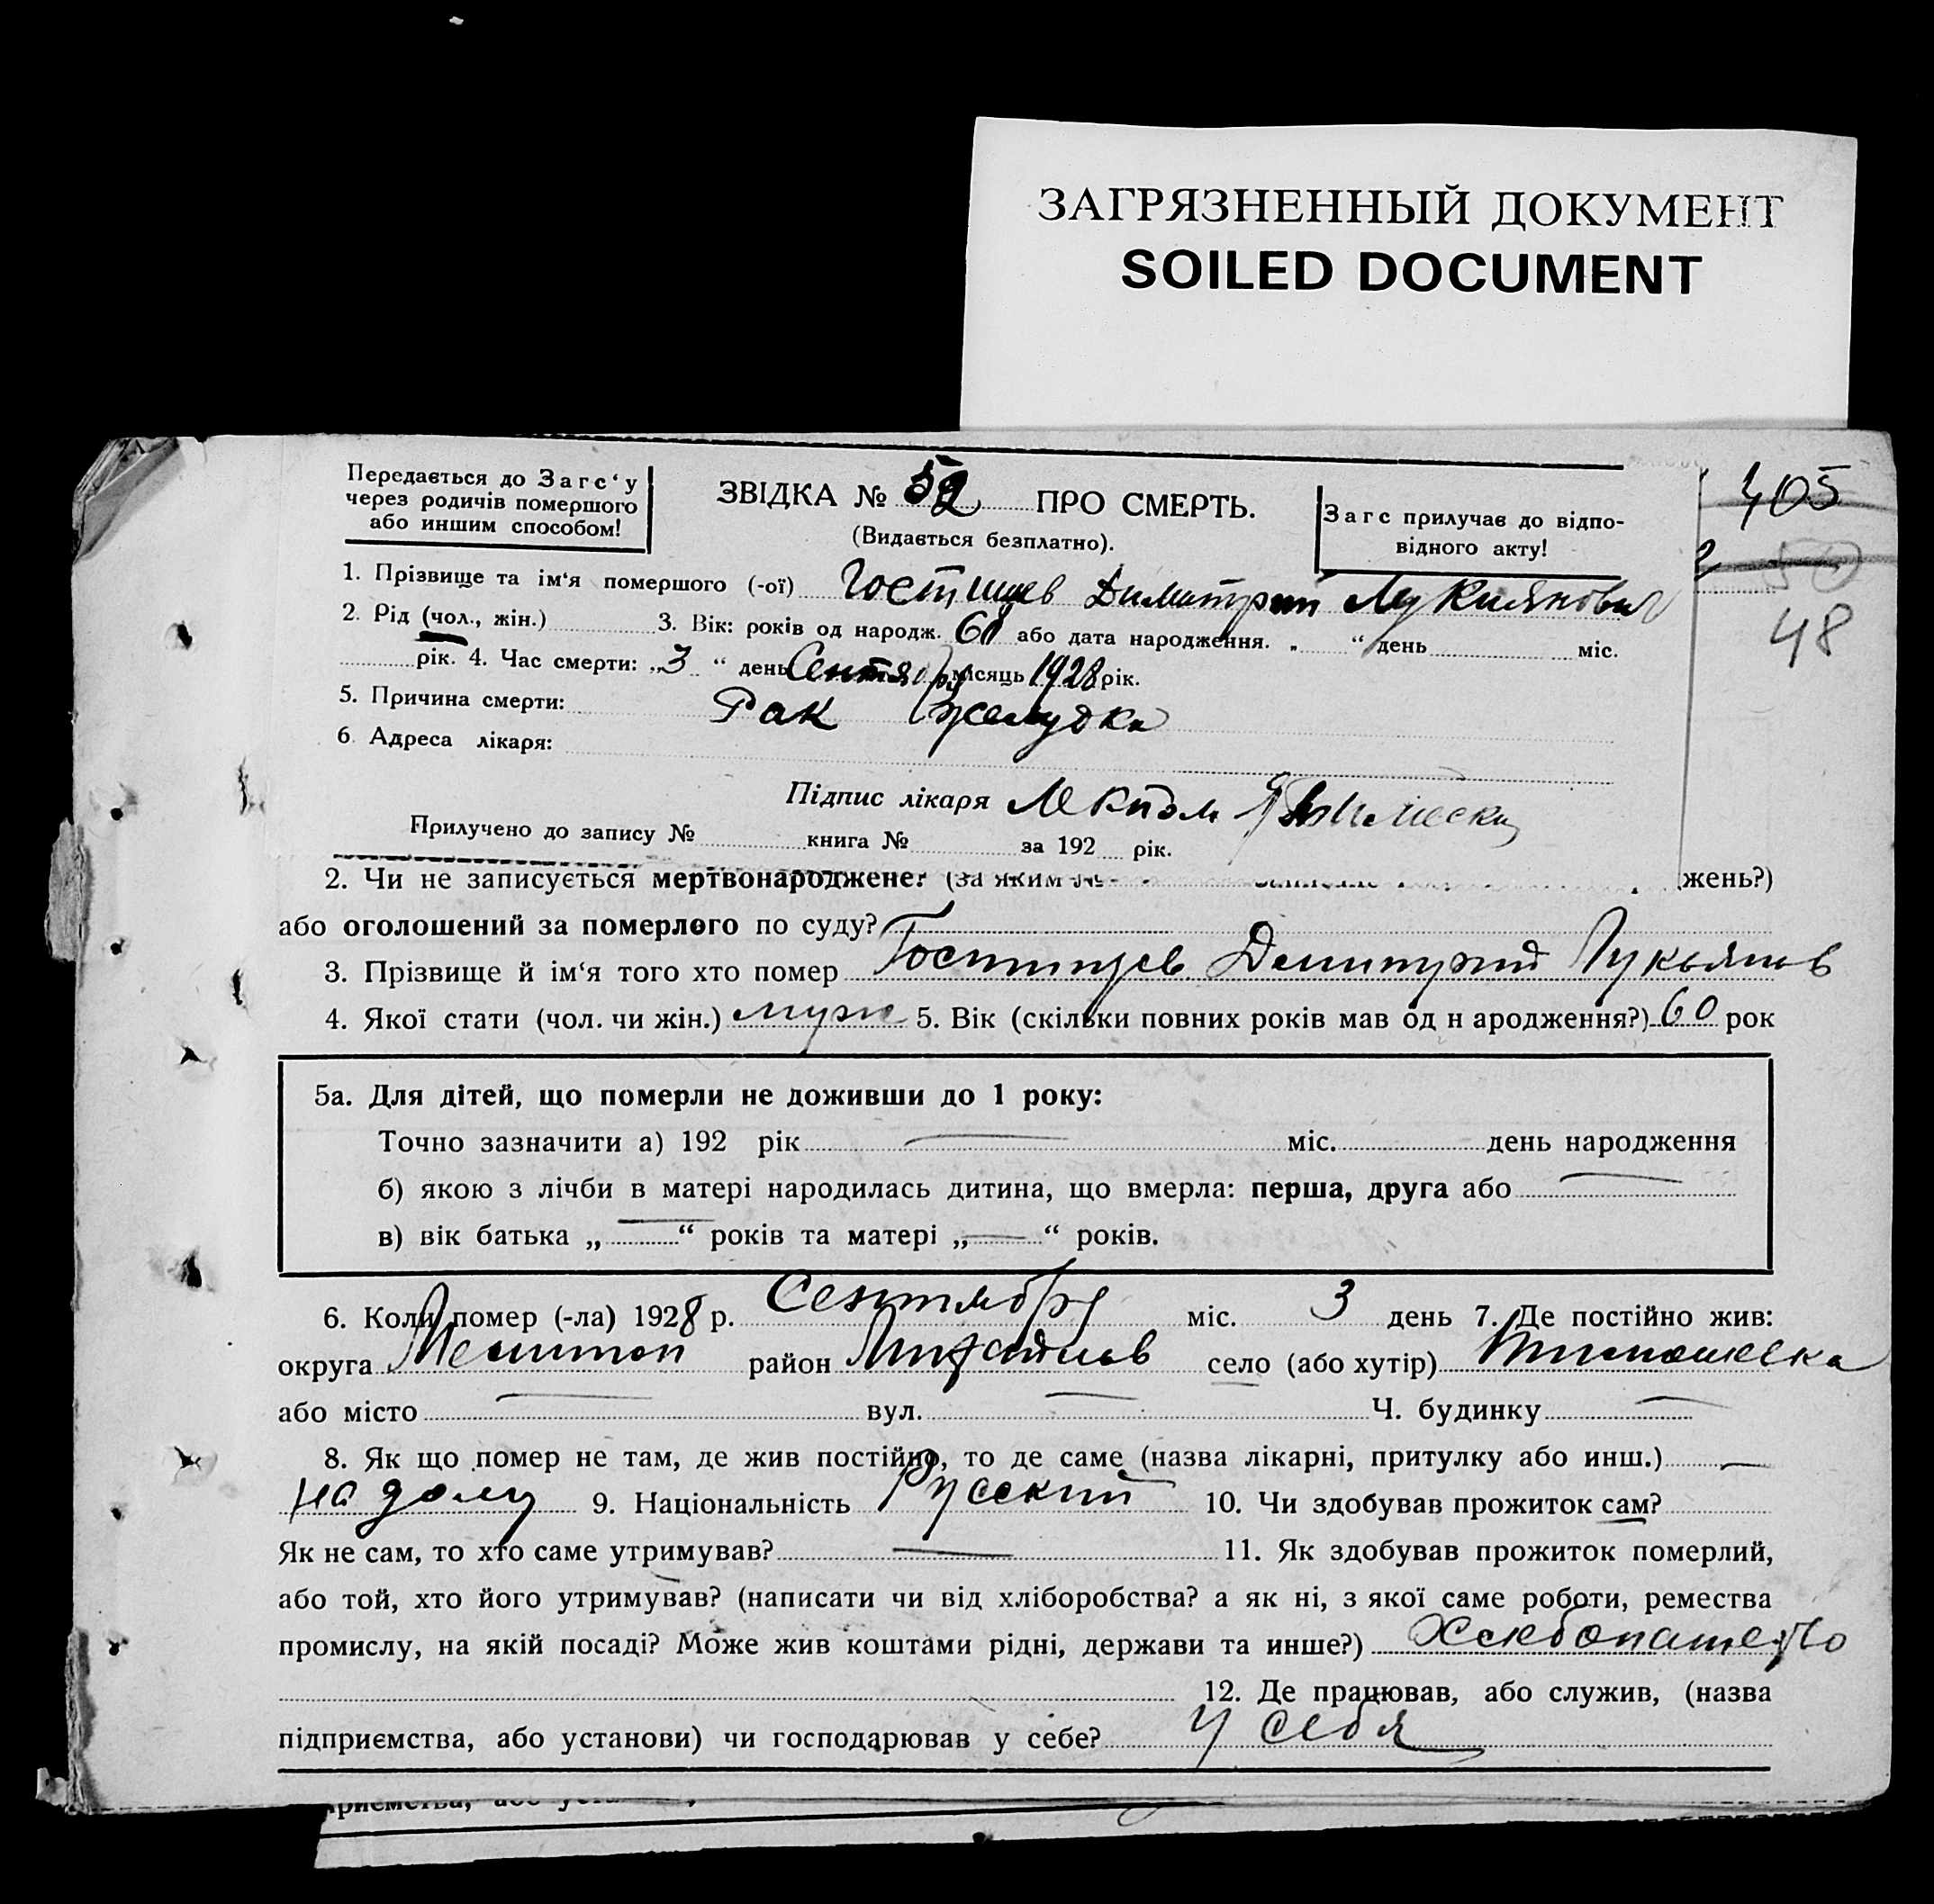 ЗАГРЯЗНЕННЫЙ ДОКУМЕНТ
SOILED DOCUMENT
Передається до Загс‘у
через родичів помершого
або иншим способом!
ЗВІДКА № 52 ПРО СМЕРТЬ.
(Видається безплатно).
Загс прилучає до відпо-
відного акту!
405
50
48
1. Прізвище та ім‘я помершого (-ої) Гостищев Димитрий Лукиянович
2. Рід (чол., жін.) 3. Вік: років од народж. 60 або дата народження. „ “ день міс.
рік. 4. Час смерти: „3 “ день Сентября місяць 1928 рік.
5. Причина смерти: Рак желудка
6. Адреса лікаря:
Підпис лікаря Лекпом
Прилучено до запису № книга № за 192 рік.
2. Чи не записується мертвонароджене? (за яким № жень?)
або оголошений за померлого по суду?
3. Прізвище й ім‘я того хто помер Гостищев Димитрий Лукьянов
4. Якої стати (чол. чи жін.) муж 5. Вік (скільки повних років мав од н ародження?) 60 рок
5а. Для дітей, що померли не доживши до 1 року:
Точно зазначити а) 192 рік — міс. день народження
б) якою з лічби в матері народилась дитина, що вмерла: перша, друга або —
в) вік батька „ — “ років та матері „ — “ років.
6. Коли помер (-ла) 1928 р. Сентября міс. 3 день 7. Де постійно жив:
округа Мелитоп район Михайлов село (або хутір) Тимошевка
або місто — вул. — Ч. будинку —
8. Як що помер не там, де жив постійно, то де саме (назва лікарні, притулку або инш.) —
на дому 9. Національність Русский 10. Чи здобував прожиток сам?
Як не сам, то хто саме утримував? — 11. Як здобував прожиток померлий,
або той, хто його утримував? (написати чи від хліборобства? а як ні, з якої саме роботи, ремества
промислу, на якій посаді? Може жив коштами рідні, держави та инше?) Хлебопашество
12. Де працював, або служив, (назва
підприємства, або установи) чи господарював у себе? У себя